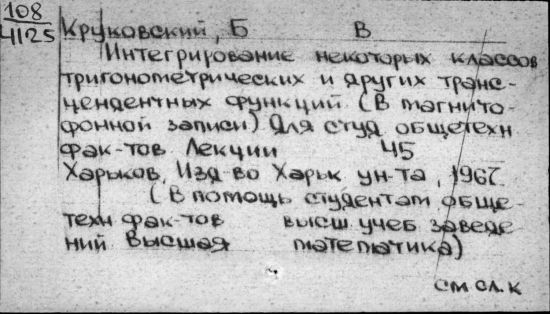 108
4125
Круковский, Б В
Интегрирование некоторых классов
тригонометрических и других транс-
цендентных функций (В магнито-
фонной записи) Для студ общетехн
фак-тов Лекции 45
Харьков, Изд-во Харьк ун-та, 1967.
(В помощь студентам обще-
техн фак-тов высш. учеб. заведе-
ний Высшая математика)
см сл. к